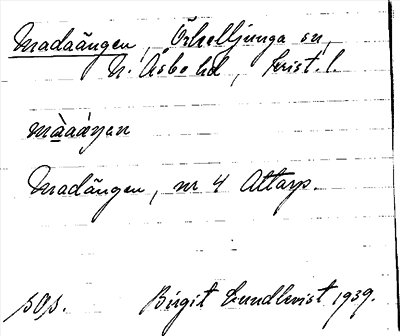 Madaängen, Örkelljunga sn,
N. Åsbo hd, Krist. l.
Madängen, nr 4 Attarp.
Birgit Lundkvist 1939.